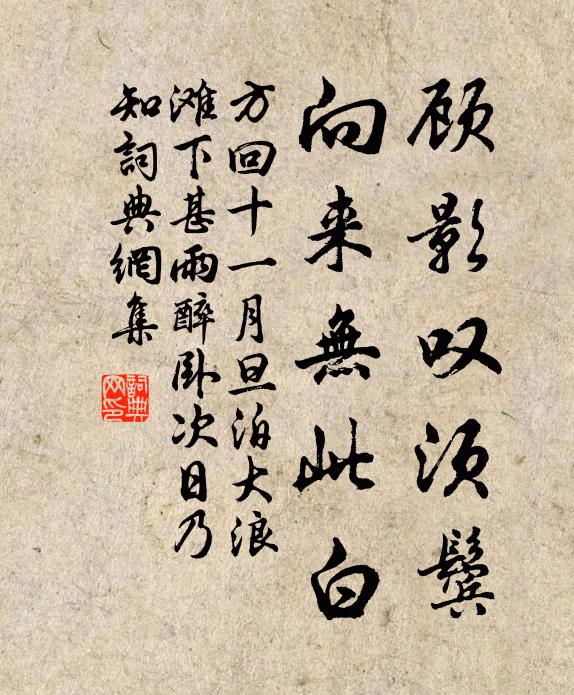 顾影叹须鬓
向来無此白
方回十一月旦泊大浪
滩下甚雨醉卧次日乃
知詞典網集
詞典网印